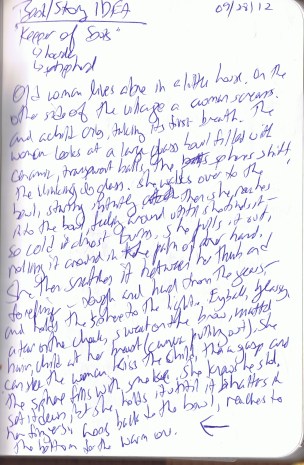 Book/Story IDEA 09/28/12
Keeper of Souls
↳ hoarder
Old woman lives alone in a little house. On the
other side of the village a woman screams.
and a child cries, taking its first breath. The
woman looks at a large glass bowl filled with
ceramic, transparent balls, the spheres shift
the clinking of glass. She walks over to the
bowl, staring intently then she reaches
into the bowl, feeling around until she finds it –
so cold it almost burns. She pulls it out,
rolling it around in the palm of her hand.
She then snatches it between her thumb and
forefinger – rough and hard from the years –
and holds the sphere to the light. Eyeball, glassy,
a tear on the cheek, sweat on the brow, matted
hair, child at her breast She
can see the woman kiss the child, then a gasp and
the sphere fills with smoke. She knows she should
set it down, but she holds it until it shatters &
her fingers back the bowl, reaches to
the bottom to the warm one. ←